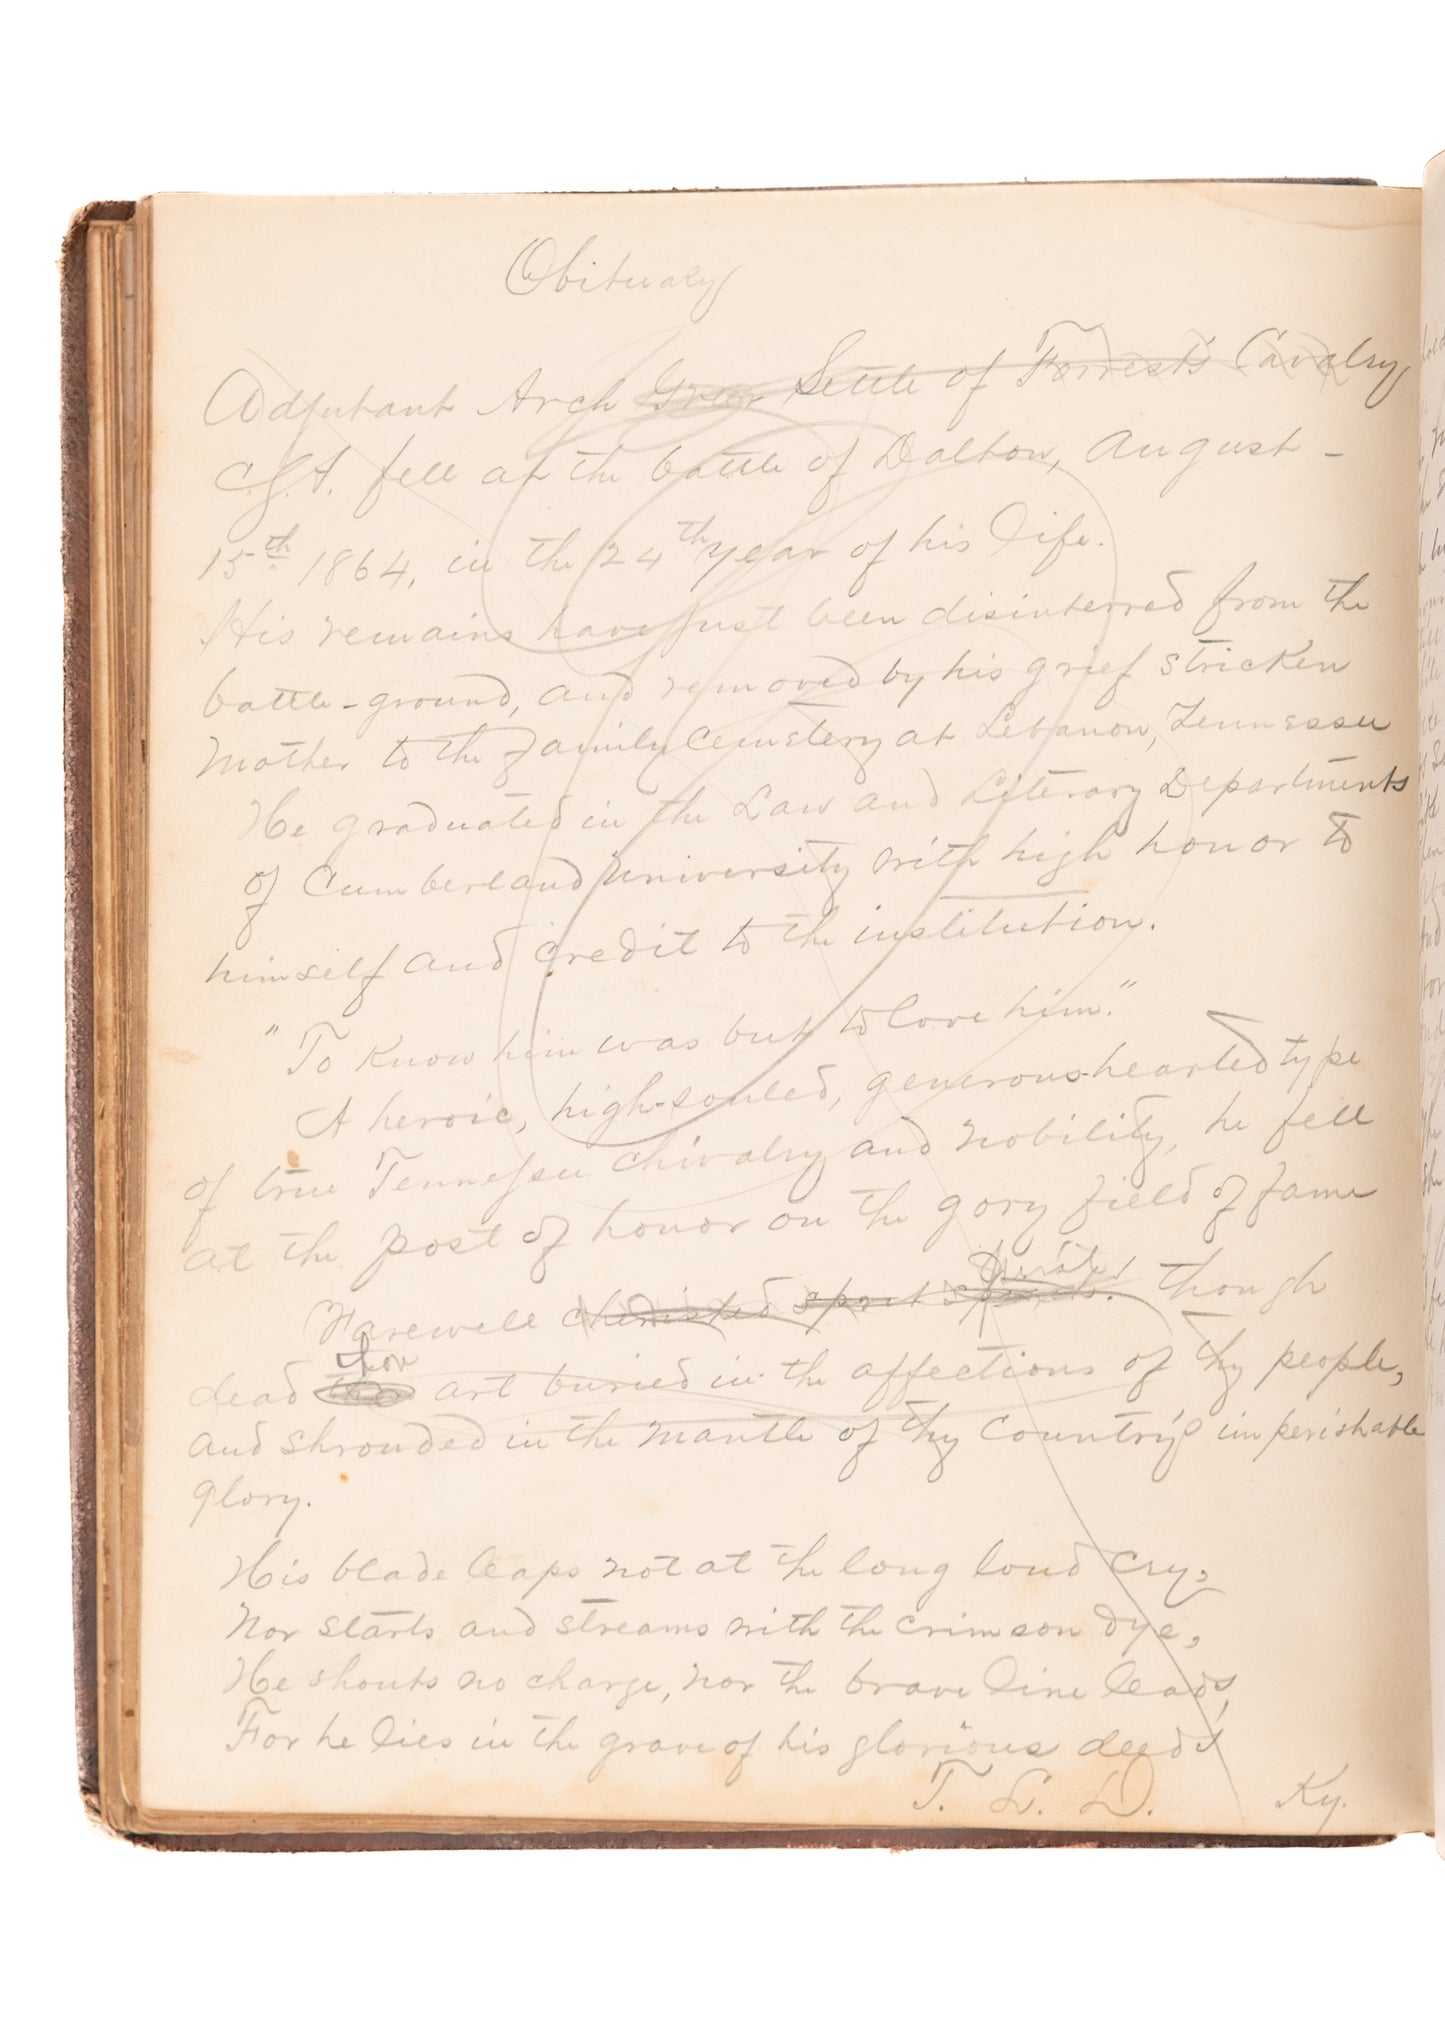 Obituary
Adjutant Arch Greer Settle of Forrest's Cavalry
C.S.A. fell at the battle of Dalton, August -
15th 1864, in the 24th year of his life.
His remains have just been disinterred from the
battle-ground, and removed by his grief stricken
Mother to the family Cemetery at Lebanon, Tennessee
He graduated in the Law and Literary Departments
of Cumberland University with high honor to
himself and credit to the institution.
"To know him was but to love him."
A heroic, high-souled, generous-hearted type
of true Tennessee chivalry and nobility, he fell
at the post of honor on the gory field of fame
Farewell cherished spirit! though
dead thou art buried in the affections of thy people,
and shrouded in the mantle of thy Country's imperishable
glory.
His blade leaps not at the long loud cry,
Nor starts and streams with the crimson dye,
He shouts no charge, nor the brave line leads,
For he lies in the grave of his glorious deeds!
T. L. D. Ky.